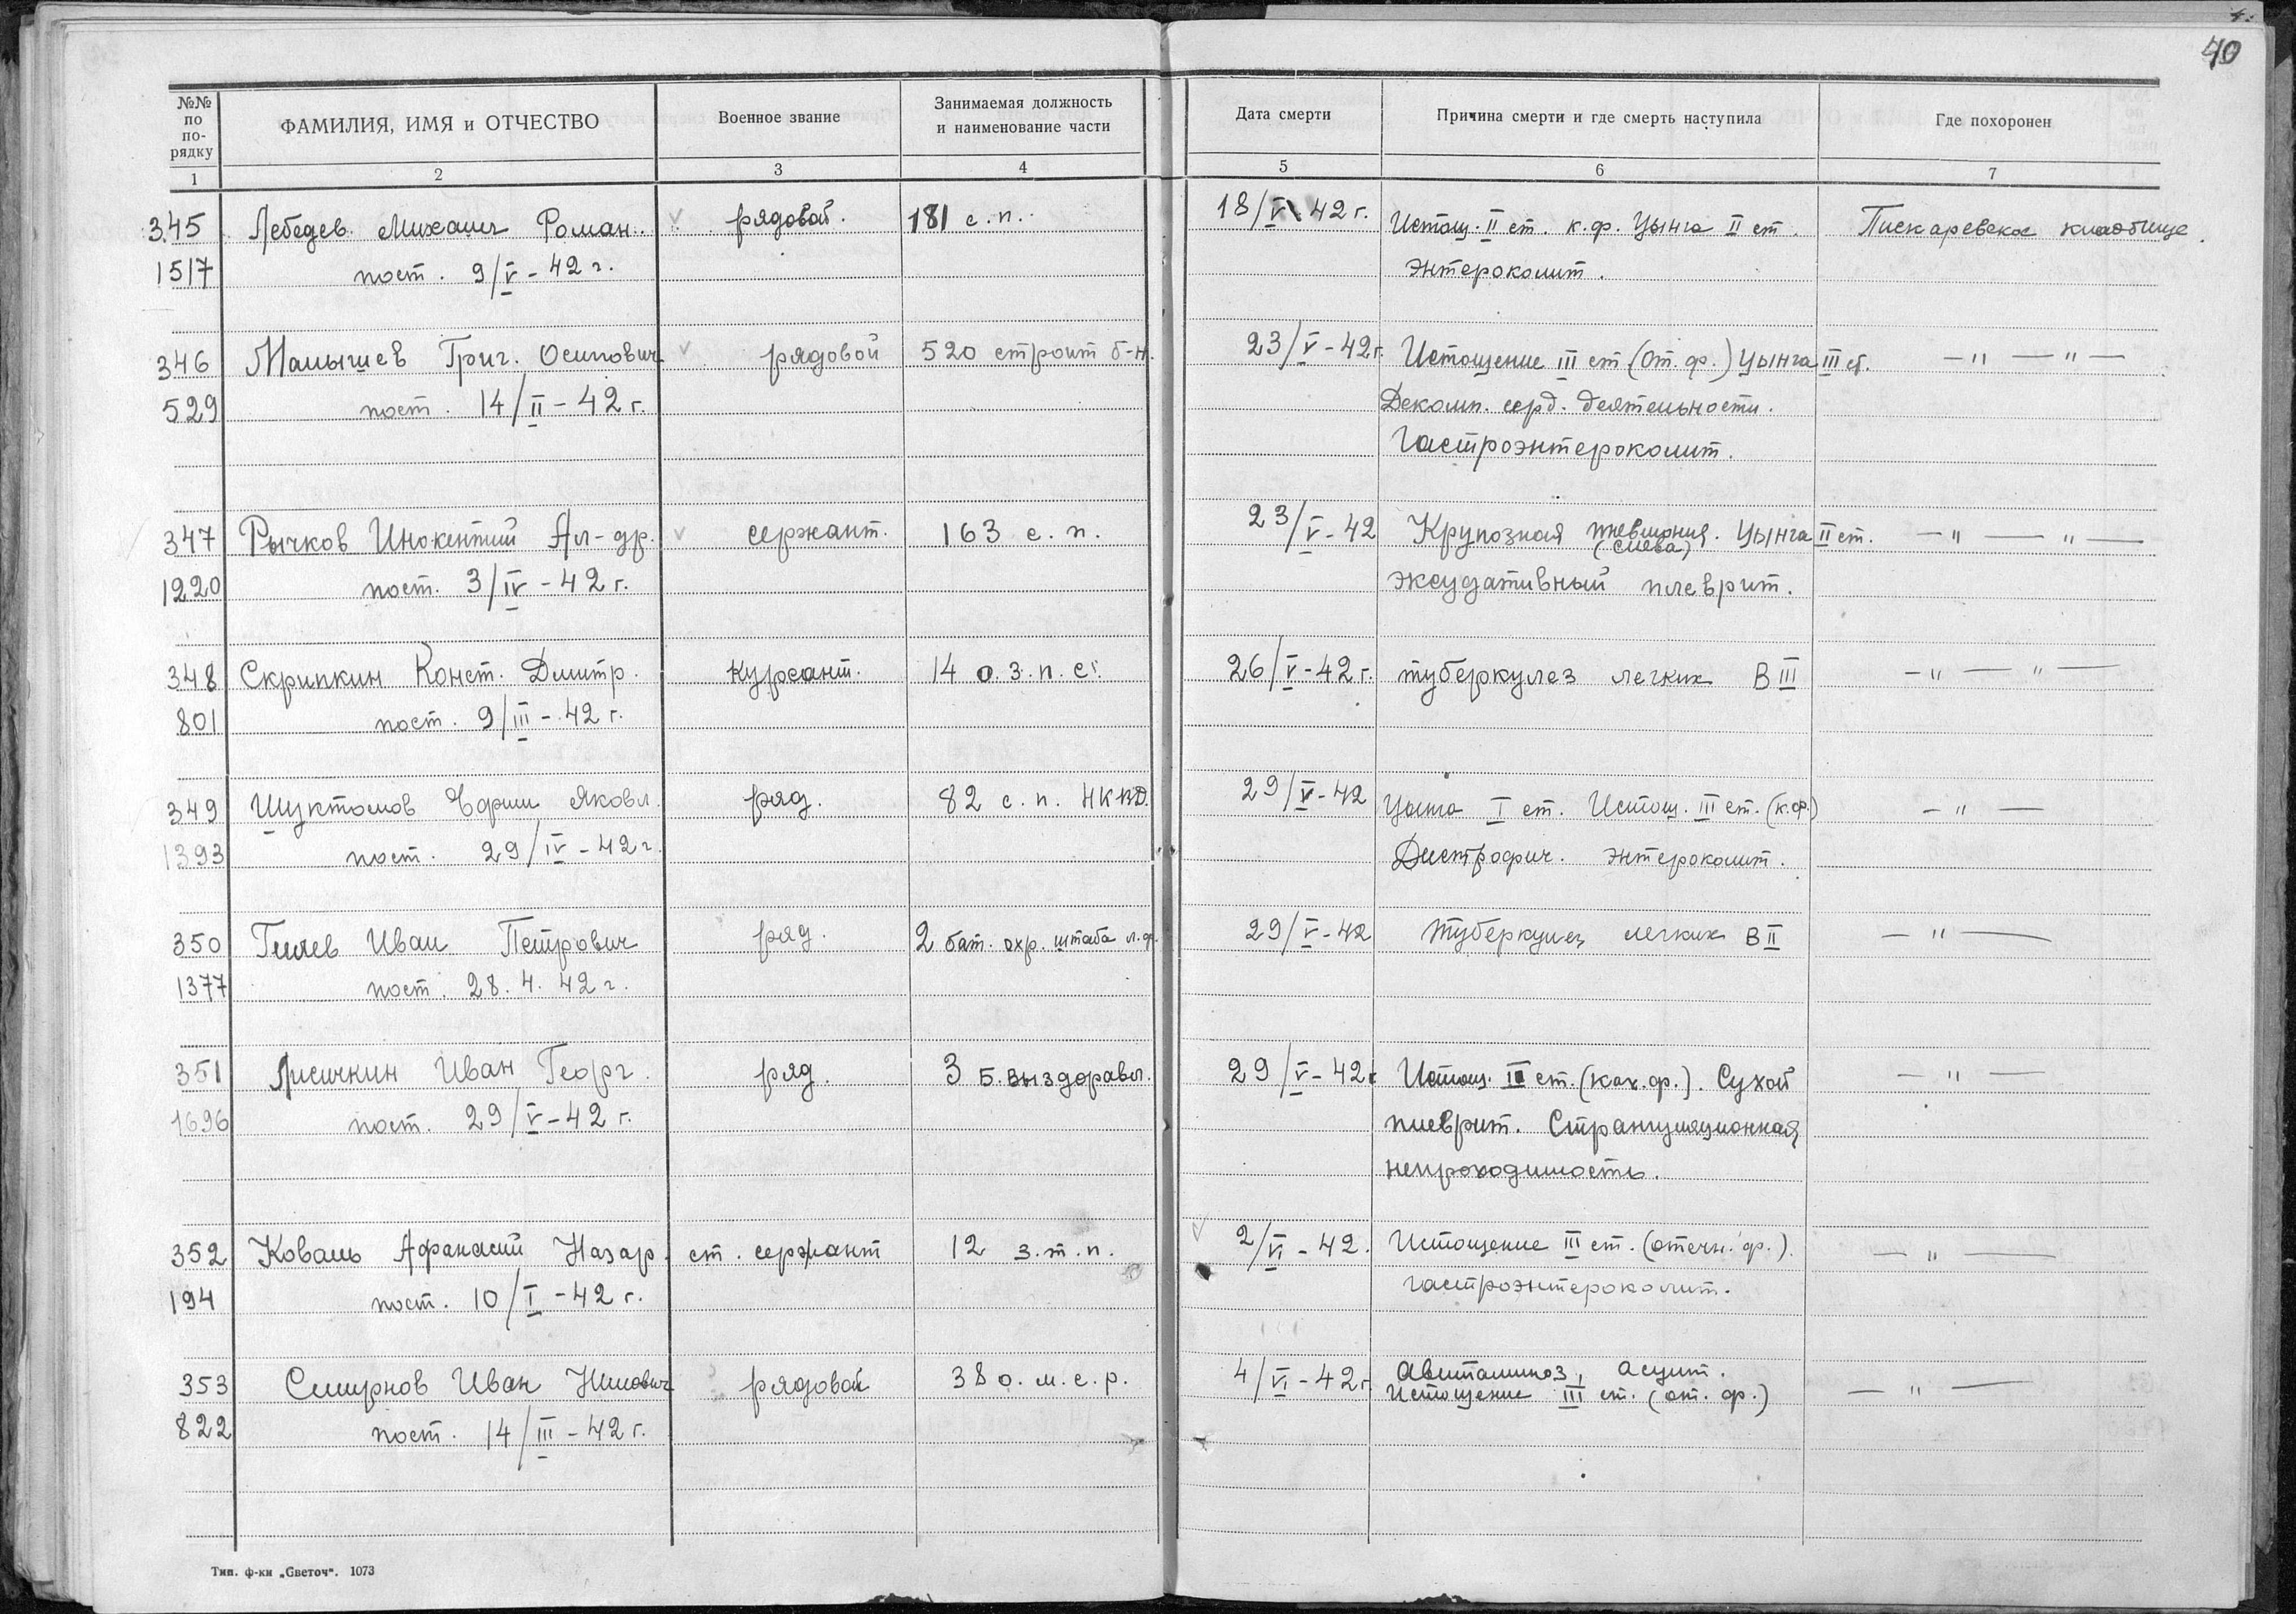 40
№№ по по- рядку
ФАМИЛИЯ, ИМЯ и ОТЧЕСТВО
Военное звание
Занимаемая должность и наименование части
Дата смерти
Причина смерти и где смерть наступила
Где похоронен
1 2 3 4 5 6 7
345 Лебедев Михаил Роман. рядовой. 181 с.п. 18/V-42 г. Истощ. II ст. к.ф. Цынга II ст. Пискаревское кладбище.
1517 пост. 9/V-42 г. Энтероколит.
346 Малышев Григ. Осипович рядовой 520 строит б-н. 23/V-42 г. Истощение III ст (от. ф.) Цынга III ст. —"—"—
529 пост. 14/II-42 г. Декомп. серд. деятельности.
Гастроэнтероколит.
347 Рычков Инокентий Ал-др. сержант. 163 с.п. 23/V-42 Крупозная пневмония. Цынга II ст. —"—"—
(слева)
1220 пост. 3/IV-42 г. эксудативный плеврит.
348 Скрипкин Конст. Дмитр. курсант. 14 о.з.п.с. 26/V-42 г. туберкулез легких В III —"—"—
801 пост. 9/III-42 г.
349 Шуктомов Ефим Яковл. ряд. 82 с.п. НКВД. 29/V-42 Цынга I ст. Истощ. III ст. (к.ф.) —"—
1393 пост. 29/IV-42 г. Дистрофич. энтероколит.
350 Гилев Иван Петрович ряд. 2 бат. охр. штаба л.ф. 29/V-42 Туберкулез легких В II —"—
1377 пост. 28.4.42 г.
351 Лисичкин Иван Георг. ряд. 3 б. выздоравл. 29/V-42 г Истощ. ст. (ках. ф.). Сухой —"—
1696 пост. 29/V-42 г. плеврит. Странгуляционная
непроходимость.
352 Коваль Афанасий Назар. ст. сержант 12 з.т.п. 2/VI-42. Истощение III ст. (отечн. ф.). —"—
194 пост. 10/I-42 г. гастроэнтероколит.
353 Смирнов Иван рядовой 38 о.м.с.р. 4/VI-42 г. Авитаминоз, асцит. —"—
Истощение III ст. (от. ф.)
822 пост. 14/III-42 г.
Тип. ф-ки „Светоч". 1073